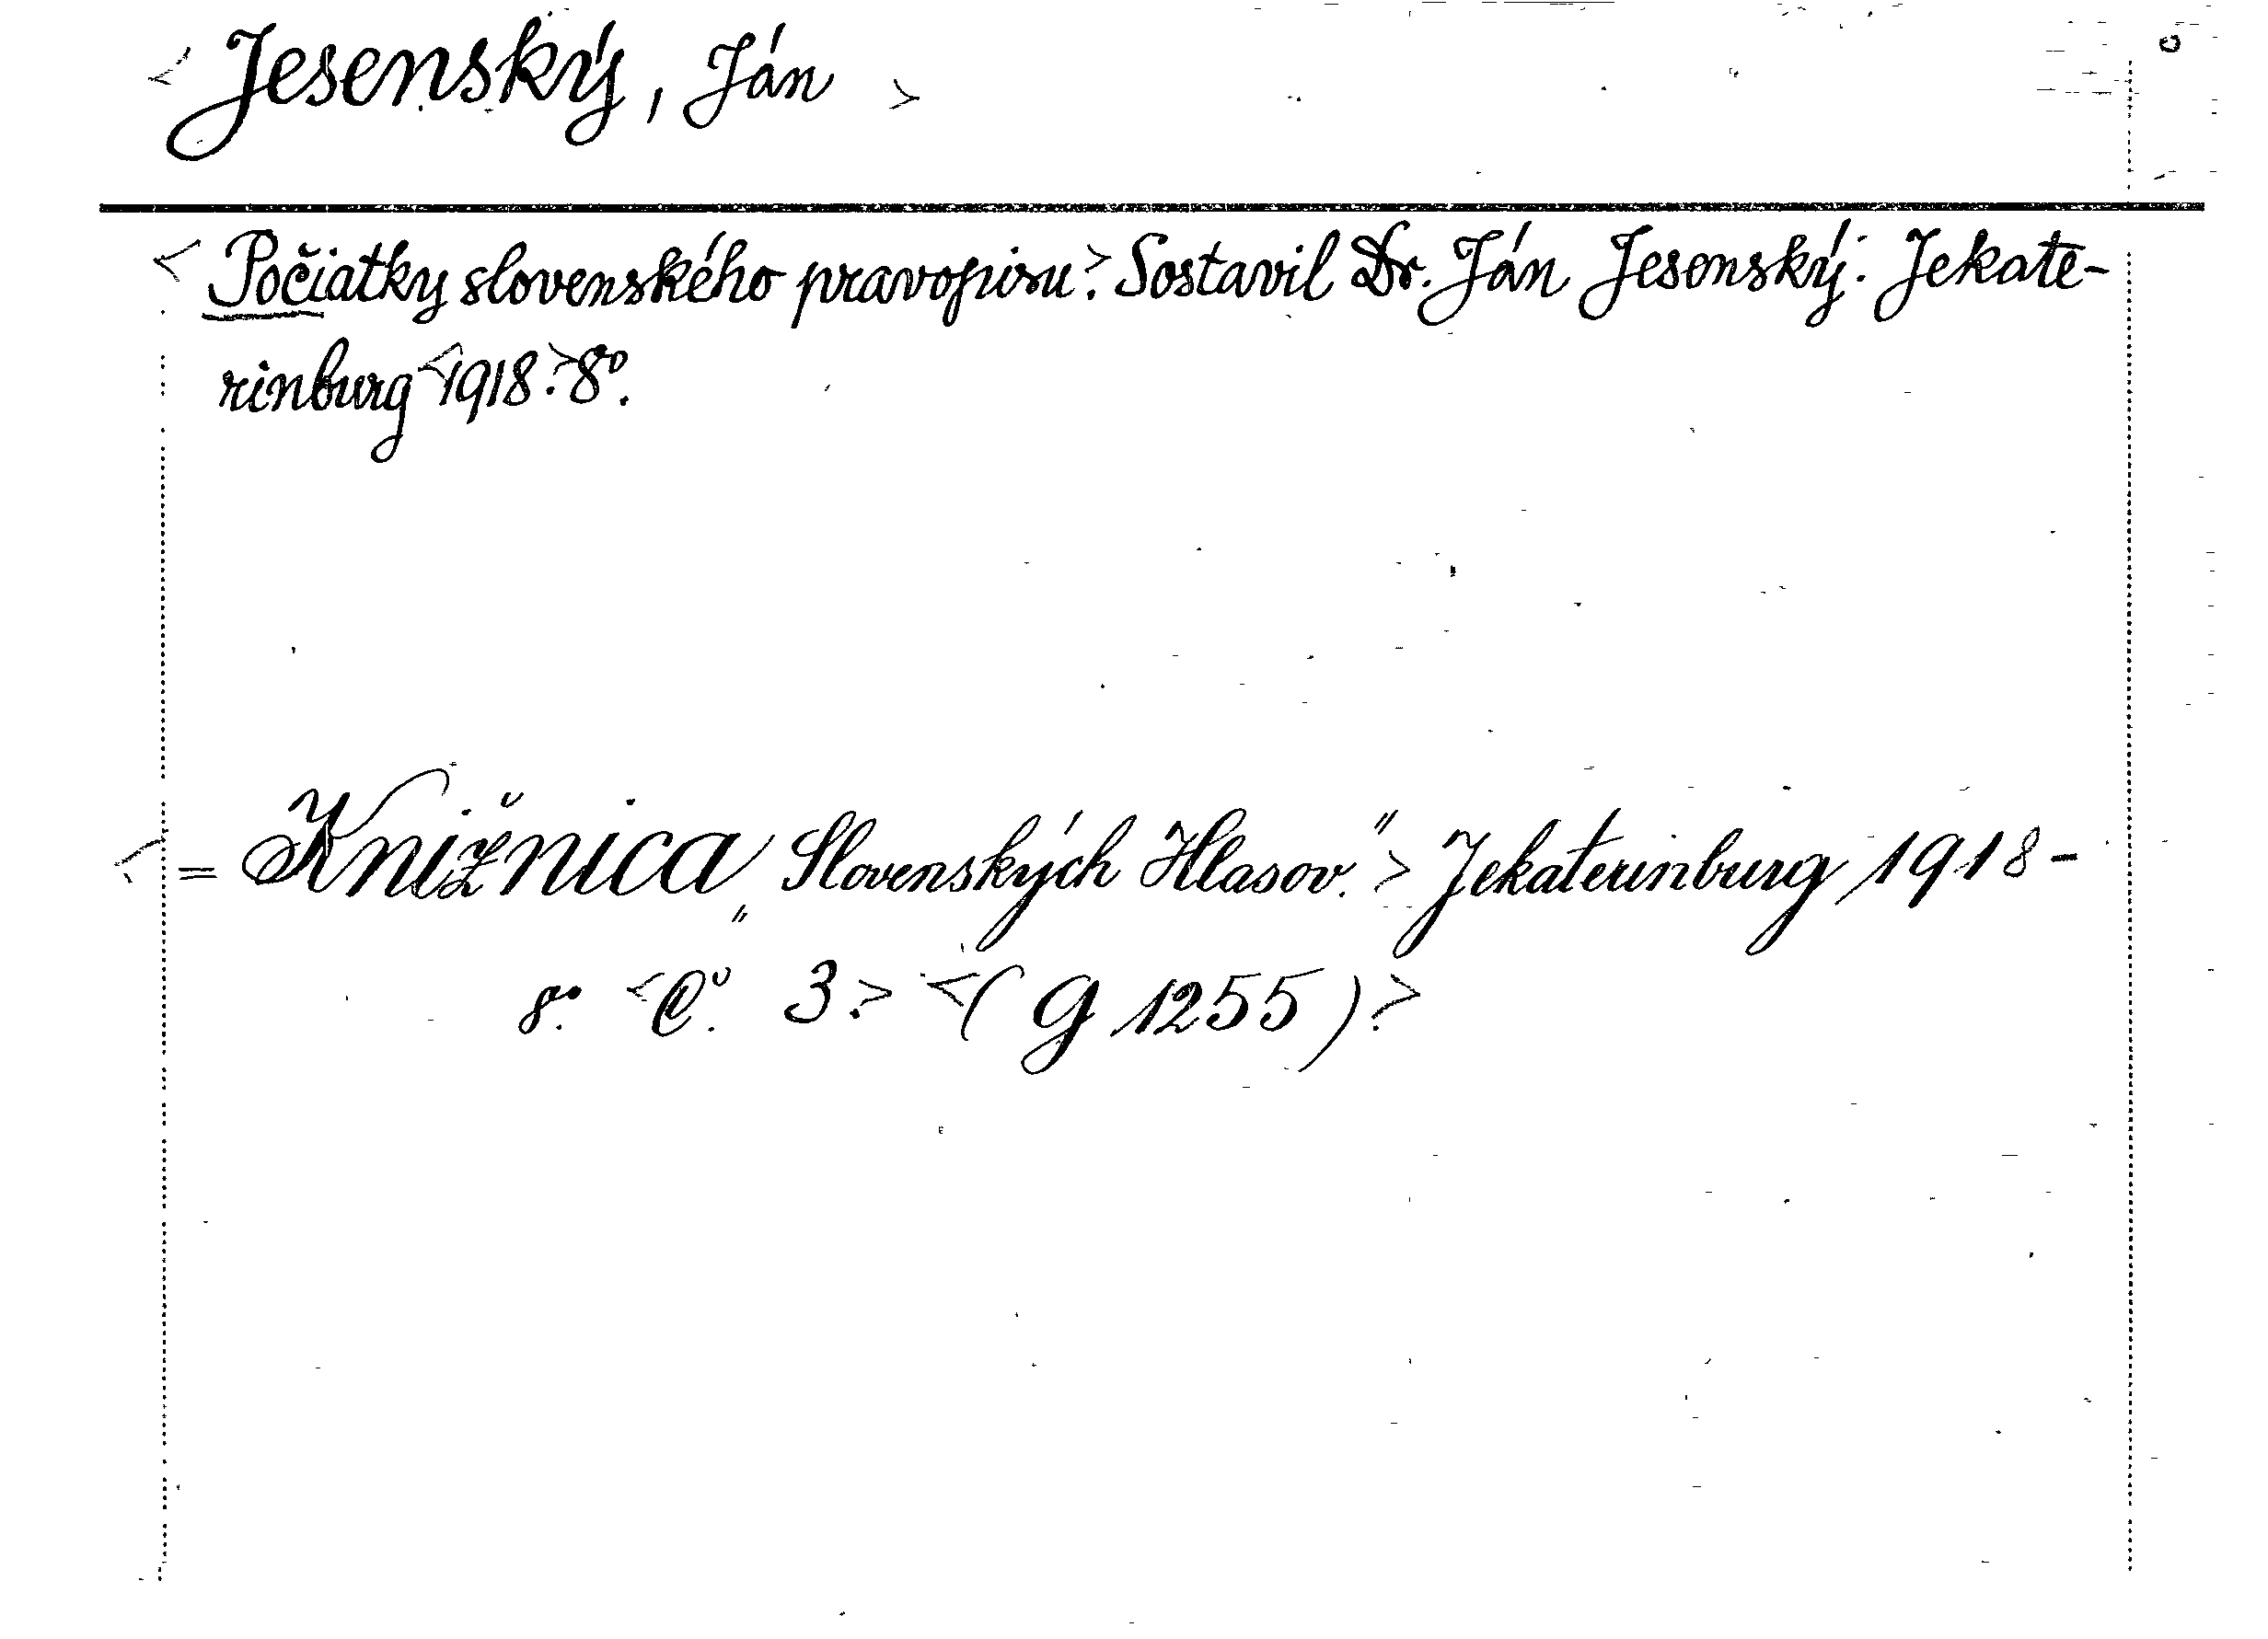 < Jesenský, Ján >
< Počiatky slovenského pravopisu.> Sostavil Dr. Ján Jesenský. Jekate-
rinburg <1918.> 8°.
<= Knižnica „Slovenských Hlasov." > Jekaterinburg 1918-
8°. <Č. 3.> <( G 1255 ).>